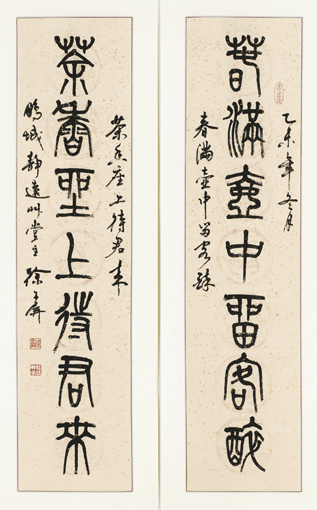 乙未年冬月
春滿壺中留客醉
春满壶中留客醉
茶香座上待君来
茶香座上待君來
鹏城静远堂主徐屏